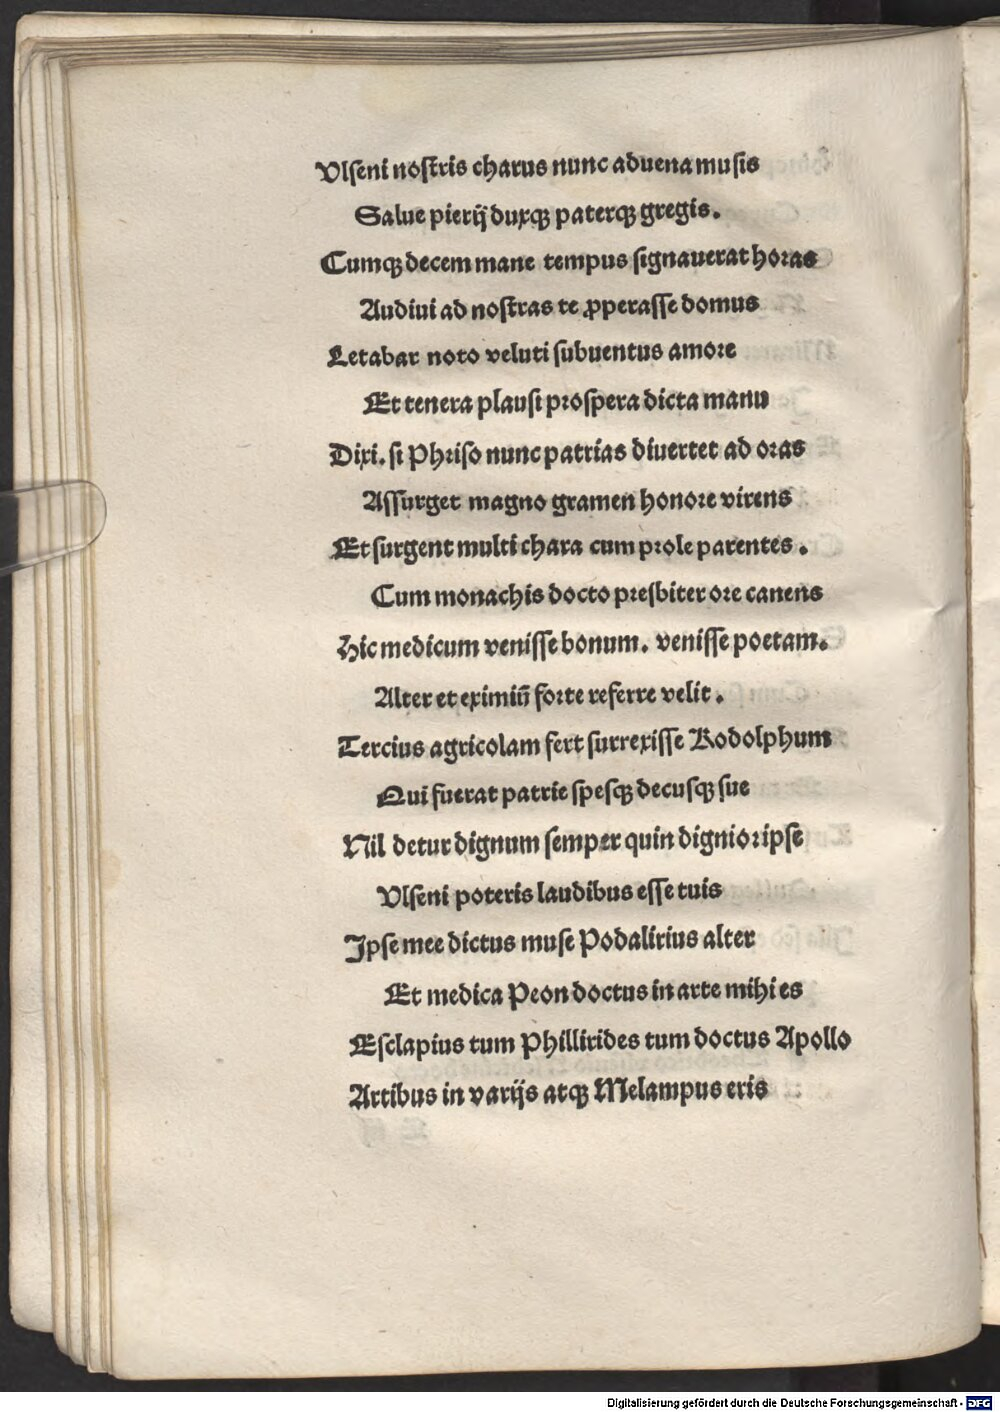 Vlſeni noſtris charus nunc aduena muſis
Salue pierij duxqꝫ paterqꝫ gregis.
Cumqꝫ decem mane tempus ſignauerat horas
Audiui ad noſtras te ꝓperaſſe domus
Letabar noto veluti ſubuentus amore
Et tenera plauſi proſpera dicta manu
Dixi. ſi Phriſo nunc patrias diuertet ad oras
Aſſurget magno gramen honore virens
Et ſurgent multi chara cum prole parentes.
Cum monachis docto preſbiter ore canens
Hic medicum veniſſe bonum. veniſſe poetam.
Alter et eximiū forte referre velit.
Tercius agricolam fert ſurrexiſſe Rodolphum
Qui fuerat patrie ſpeſqꝫ decuſqꝫ ſue
Nil detur dignum ſemper quin dignior ipſe
Vlſeni poteris laudibus eſſe tuis
Ipſe mee dictus muſe Podalirius alter
Et medica Peon doctus in arte mihi es
Eſclapius tum Phillirides tum doctus Apollo
Artibus in varijs atqꝫ Melampus eris
Digitalisierung gefördert durch die Deutsche Forschungsgemeinschaft - DFG